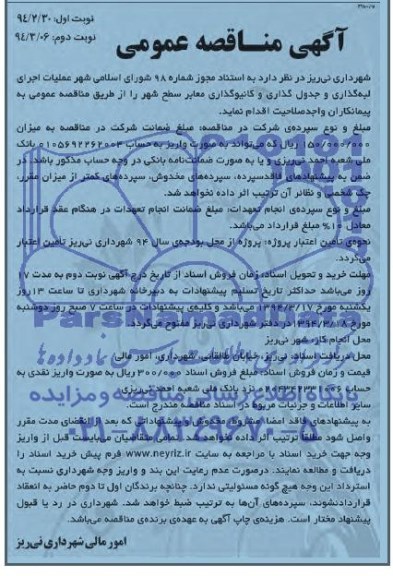 نوبت اول: ۹٤/۲/۳۰
نوبت دوم: ۹٤/۳/۰۶
آگهی مناقصه عمومی
شهرداری نی‌ریز در نظر دارد به استناد مجوز شماره ۹۸ شورای اسلامی شهر عملیات اجرای
لبه‌گذاری و جدول گذاری و کانیوگذاری معابر سطح شهر را از طریق مناقصه عمومی به
پیمانکاران واجدصلاحیت اقدام نماید.
مبلغ و نوع سپرده‌ی شرکت در مناقصه: مبلغ ضمانت شرکت در مناقصه به میزان
۱۵۰/۰۰۰/۰۰۰ ریال که می‌تواند به صورت واریز به حساب ۰۱۰۵۶۹۲۲۶۲۰۰۳ بانک
ملی شعبه احمد نی‌ریزی و یا به صورت ضمانت‌نامه بانکی در وجه حساب مذکور باشد. در
ضمن به پیشنهادهای فاقدسپرده، سپرده‌های مخدوش، سپرده‌های کمتر از میزان مقرر،
چک شخصی و نظائر آن ترتیب اثر داده نخواهد شد.
مبلغ و نوع سپرده‌ی انجام تعهدات: مبلغ ضمانت انجام تعهدات در هنگام عقد قرارداد
معادل ۱۰% مبلغ قرارداد می‌باشد.
نحوه‌ی تأمین اعتبار پروژه: پروژه از محل بودجه‌ی سال ۹۴ شهرداری نی‌ریز تأمین اعتبار
می‌گردد.
مهلت خرید و تحویل اسناد: زمان فروش اسناد از تاریخ درج آگهی نوبت دوم به مدت ۱۷
روز می‌باشد حداکثر تاریخ تسلیم پیشنهادات به دبیرخانه شهرداری تا ساعت ۱۳ روز
یکشنبه مورخ ۱۳۹۴/۳/۱۷ می‌باشد و کلیه‌ی پیشنهادات در ساعت ۷ صبح روز دوشنبه
مورخ ۱۳۹۴/۳/۱۸ در دفتر شهرداری نی‌ریز مفتوح می‌گردد.
محل انجام کار: شهر نی‌ریز
محل دریافت اسناد: نی‌ریز، خیابان طالقانی، شهرداری، امور مالی
قیمت و زمان فروش اسناد: مبلغ فروش اسناد ۳۰۰/۰۰۰ ریال به صورت واریز نقدی به
حساب نزد بانک ملی شعبه احمد نی‌ریزی
سایر اطلاعات و جزئیات مربوط در اسناد مناقصه مندرج است.
به پیشنهادهای فاقد امضا، مشروط، مخدوش و پیشنهاداتی که بعد از انقضای مدت مقرر
واصل شود مطلقاً ترتیب اثر داده نخواهد شد. تمامی متقاضیان می‌بایست قبل از واریز
وجه جهت خرید اسناد با مراجعه به سایت www.neyriz.ir فرم پیش خرید اسناد را
دریافت و مطالعه نمایند. درصورت عدم رعایت این بند و واریز وجه شهرداری نسبت به
استرداد این وجه هیچ گونه مسئولیتی ندارد. چنانچه برندگان اول تا دوم حاضر به انعقاد
قراردادنشوند، سپرده‌های آن‌ها به ترتیب ضبط خواهد شد. شهرداری در رد یا قبول
پیشنهاد مختار است. هزینه‌ی چاپ آگهی به عهده‌ی برنده‌ی مناقصه می‌باشد.
امور مالی شهرداری نی‌ریز
پایگاه اطلاع رسانی مناقصه و مزایده
۰۲۱-۸۸۳۴۹۶۷۰-۵